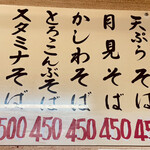 天ぷらそば 45
月見そば 450
かしわそば 450
とろろこんぶそば 450
スタミナそば 500